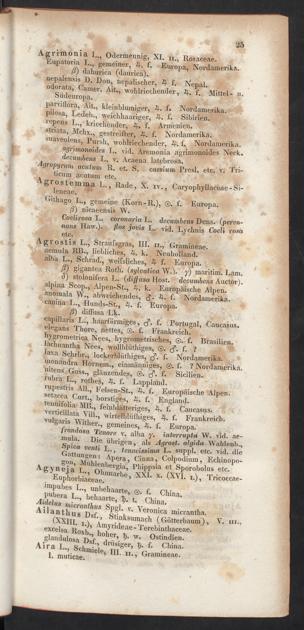 25
Agrimonia L., Odermennig, XI. II., Rosaceae.
Eupatoria L., gemeiner, ♃. f. Europa, Nordamerika.
β) dahurica (daurica).
nepalensis D. Don, nepalischer, ♃. f. Nepal.
odorata, Camer. Ait., wohlriechender, ♃. f. Mittel- u.
Südeuropa.
parviflora, Ait., kleinblumiger, ♃. f. Nordamerika.
pilosa, Ledeb., weichhaariger, ♃. f. Sibirien.
repens L., kriechender, ♃. f. Armenien.
striata, Mchx., gestreifter, ♃. f. Nordamerika.
suaveolens, Pursh, wohlriechender, ♃. f. Nordamerika.
agrimonoides L. vid. Aremonia agrimonoides Neck.
decumbens L., v. Araena latebrosa.
Agropyrum acutum R. et. S. caesium Presl, etc, v. Tri-
ticum acutum etc.
Agrostemma L., Rade, X. IV., Caryophyllaceae-Si-
leneae.
Githago L., gemeine (Korn-R.), ☉. f. Europa.
β) nicaeensis W.
Coelirosa L. coronaria L. decumbens Dess. (perso-
nans Haw.). flos jovis L. vid. Lychnis Coeli rosa
etc.
Agrostis L., Straufsgras, III. II., Gramineae.
aemula RBr., liebliches, ♃. k. Neuholland.
alba L., Schrad., weifsliches, ♃. f. Europa.
β) gigantea Roth. (sylvatica W.). γ) maritim. Lam.
δ) stolonifera L. (diffusa Host. decumbens Auctor).
alpina Scop., Alpen-St., ♃. k. Europäische Alpen.
anomala W., abweichendes, ♂. ♃. f. Nordamerika.
canina L., Hunds-St., ♃. f. Europa.
β) diffusa Lk.
capillaris L., haarförmiges, ♂. f. Portugal, Caucasus.
elegans Thore, nettes, ☉. f. Frankreich.
hygrometrica Nees, hygrometrisches, ☉. f. Brasilien.
lachnantha Nees, wollblüthiges, ☉. ♂. f. ?
laxa Schrbr., lockerblüthiges, ♂. f. Nordamerika.
monandra Hornem., einmänniges, ☉. f. ? Nordamerika.
nitens Guss., glänzendes, ☉. ♂. f. Sicilien.
rubra L., rothes, ♃. f. Lappland.
rupestris All., Felsen-St., ♃. f. Europäische Alpen.
setacea Curt., borstiges, ♃. f. England.
tenuifolia MB., feinblätteriges, ♃. f. Caucasus.
verticillata Vill., wirtelblüthiges, ♃. f. Frankreich.
vulgaris Wither., gemeines, ♃. f. Europa.
frondosa Tenore v. alba γ. interrupta W. vid. ae-
mula. Die übrigen, als Agrost. algida Wahlenb.,
Spica venti L., tenacissima L. suppl. etc. vid. die
Gattungen: Apera, Cinna, Colpodium, Echinopo-
gon, Mühlenbergia, Phippsia et Sporobolus etc.
Agyneja L., Ohnnarbe, XXI. X. (XVI. I.), Tricoccae-
Euphorbiaceae.
impubes L., unbehaarte, ☉. f. China.
pubera L., behaarte, ♄. t. China.
Aidelus micranthus Spgl. v. Veronica micrantha.
Ailanthus Dsf., Stinksumach (Götterbaum), V. III.,
(XXIII. I.), Amyrideae-Terebinthaceae.
excelsa Roxb., hoher, ♄. w. Ostindien.
glandulosa Dsf., drüsiger, ♄. f. China.
Aira L., Schmiele, III. II., Gramineae.
I. muticae.